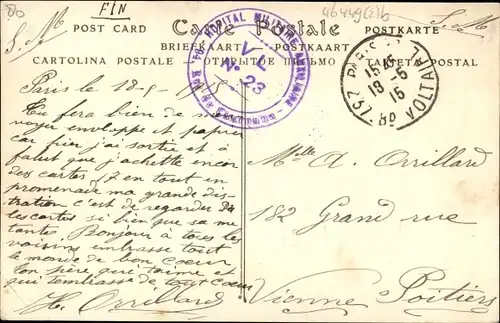 FIN
46449(2)b
S. M
Carte Postale
S. M
POST CARD
POSTKARTE
BRIEFKAART
POSTKAART
CARTOLINA POSTALE
ОТКРЫТОЕ ПИСЬМО
TARJETA POSTAL
HOPITAL MILITAIRE AUXILIAIRE
V.G.
N° 23
PARIS
15
18-5
15
BD VOLTAIRE
Paris le 18-5-15
Tu fera bien de me
voyer enveloppe et papier
car hier j'ai sortie et à
falut que j'achette encor
des cartes 17 en tout en
promenade ma grande dis-
tration c'est de regarder
les cartes si bien que sa me
tente. Bonjour à tous les
voisins embrasse tout
le monde de bon cœur
ton père qui t'aime et
qui t'embrasse de tout cœur
H. Orrillard
Mlle A. Orrillard
182 Grand rue
Poitiers
Vienne